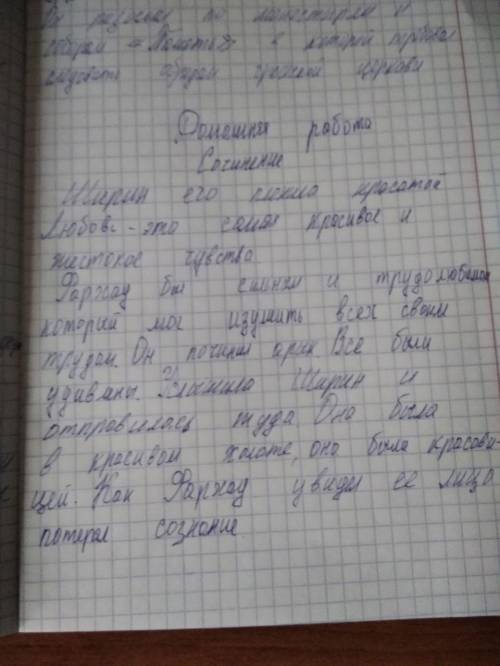 разослал по монастырям и
соборам «Память» в которой
следовать обрядам греческой церкви
Домашняя работа
Сочинение
Ширин его красатой
Любовь - это самое красивое и
жестокое чувство
Фархад был сильным и трудолюбивым
который мог изумить всех своим
трудом. Он починил арик Все были
удивлены. Услышила Ширин и
отправилась туда. Она была
в красивом халате, она была красови-
цей. Как Фархад увидел ее лицо
потерял сознание.